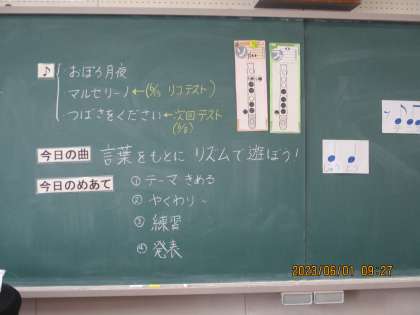 ♪ おぼろ月夜
マルセリーノ←(6/1 リコテスト)
つばさをください←次回テスト
(6/8)
今日の曲 言葉をもとに リズムで遊ぼう!
今日のめあて ①テーマ きめる
②やくわり 〃
③練習
④発表
ソ
2023/06/01 09:27